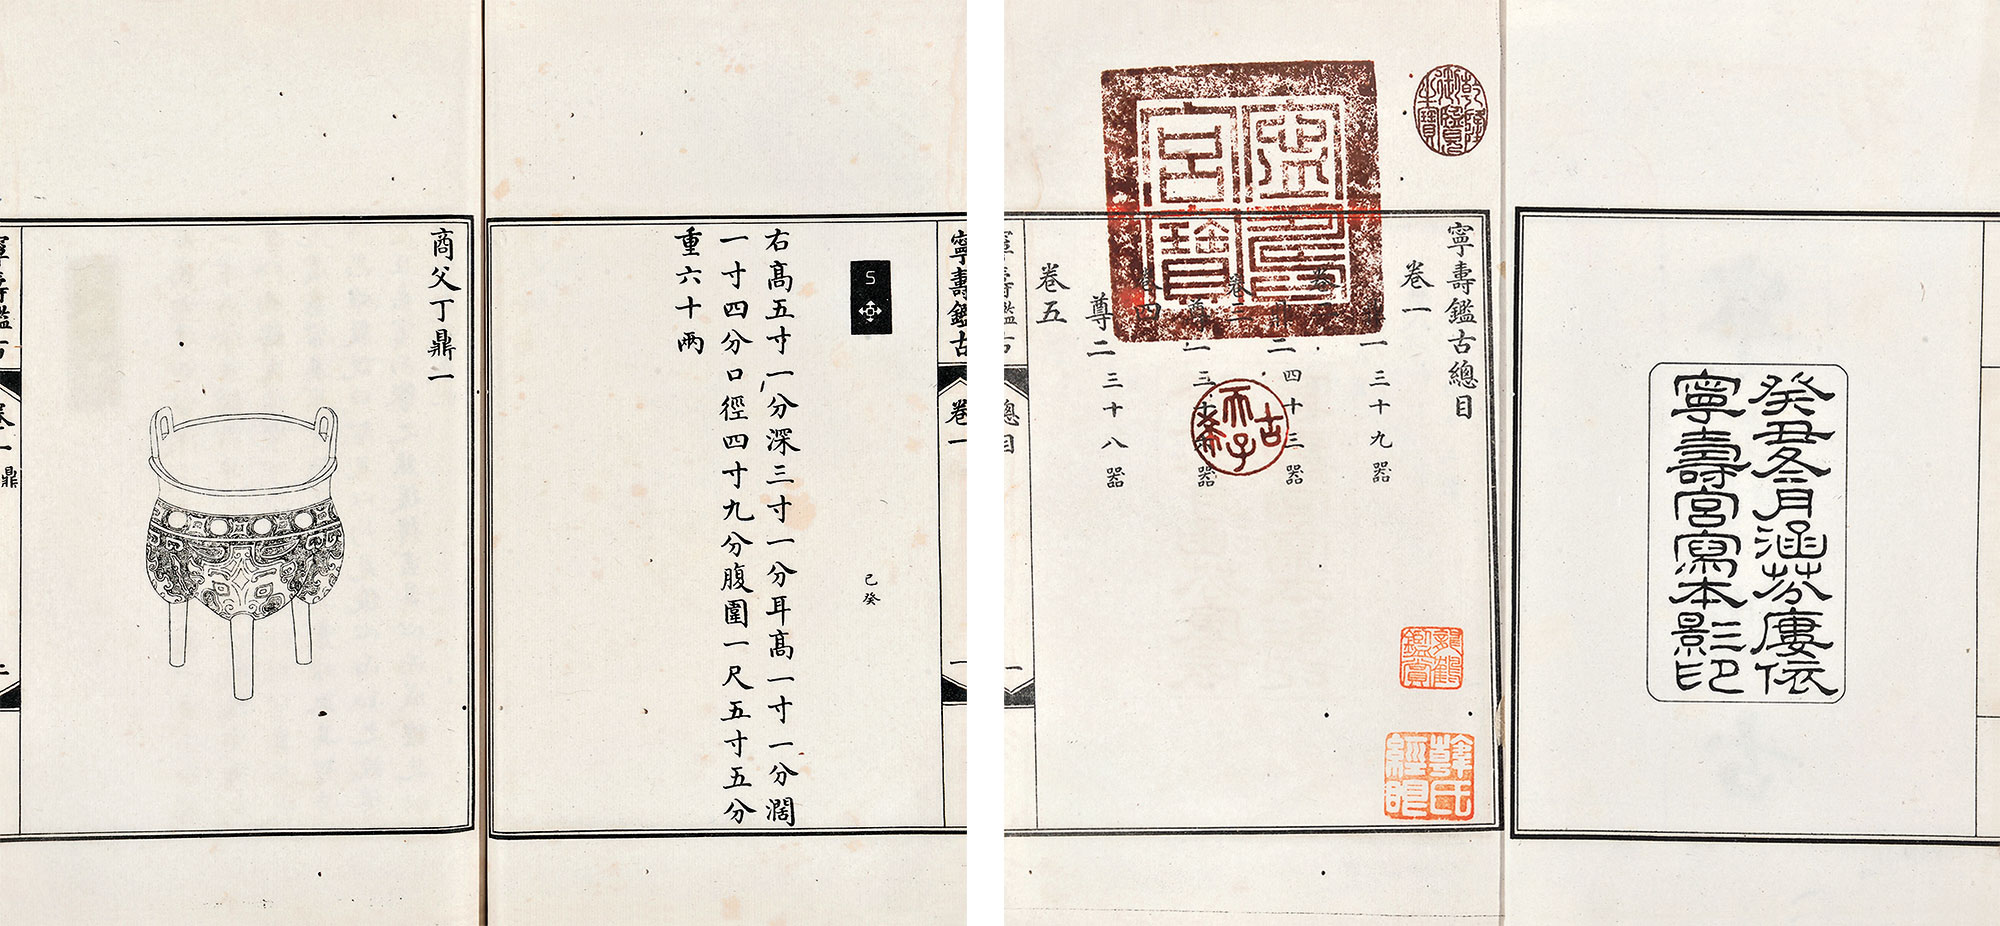 癸丑冬月涵芬廔依
寧壽宮寫本影印
乾隆御覽之寶
寧壽宮寶
寧壽鑑古總目
卷一
鼎一三十九器
卷二
鼎二四十三器
卷三
卷四
尊二三十八器
卷五
古希天子
龍鶴鑑賞
薛氏
寧壽鑑古
總目
一
寧壽鑑古
卷一
一
己癸
右高五寸一分深三寸一分耳高一寸一分濶
一寸四分口徑四寸九分腹圍一尺五寸五分
重六十兩
商父丁鼎一
寧壽鑑古
卷一
鼎
二